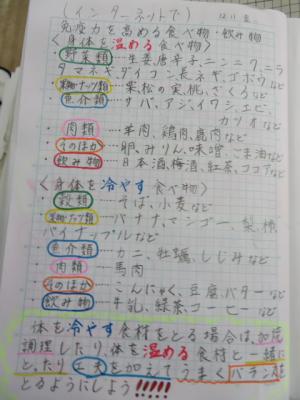 (インターネットで)
免疫力を高める食べ物・飲み物
<身体を温める食べ物>
・野菜類…生姜唐辛子、ニンニク、ニラ
タマネギ、ダイコン長ネギ、ゴボウなど
・果物・ナッツ類…栗松の実桃、ざくろなど
・魚介類…サバ、アジ、イワシ、エビ、
カツオなど
・肉類…羊肉、鶏肉、鹿肉など
・そのほか…卵、みりん、味噌、ごま油など
・飲み物…日本酒、梅酒、紅茶、ココアなど
<身体を冷やす食べ物>
・穀類…そば、小麦など
・果物・ナッツ類…バナナ、マンゴー、梨、柿、
パイナップルなど
・魚介類…カニ、牡蠣、しじみなど
・肉類…馬肉
・そのほか…こんにゃく、豆腐、バターなど
・飲み物…牛乳、緑茶、コーヒーなど
体を冷やす食材をとる場合は、加熱
調理したり、体を温める食材と一緒に
とったり工夫を加えてうまくバランスを
とるようにしよう!!!!!